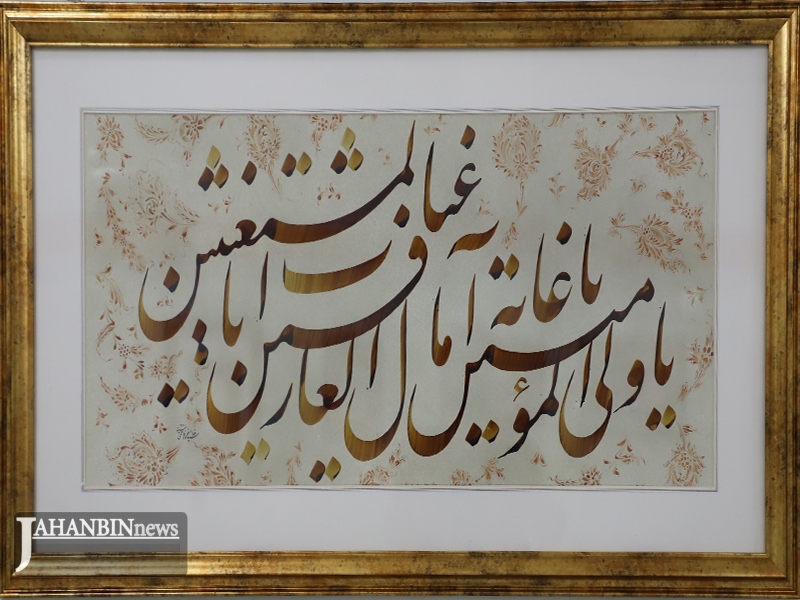 یا ولی المؤمنین
یا غایة آمال العارفین
یا غیاث المستغیثین
JAHANBINnews